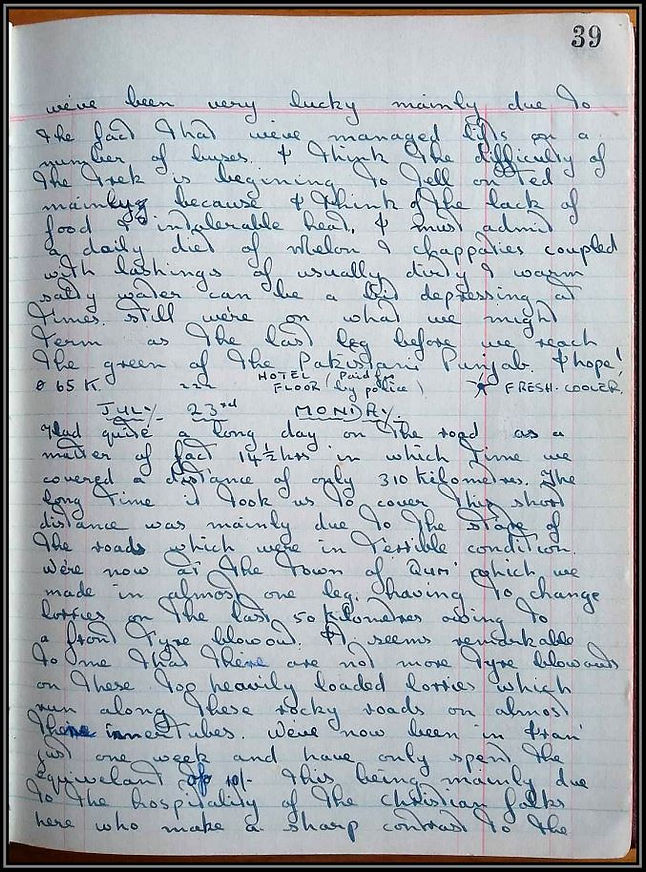 39
we've been very lucky mainly due to
the fact that we've managed lifts on a
number of buses. I think the difficulty of
the trek is begining to tell on Ted
mainly because I think of the lack of
food & intolerable heat. I must admit
a daily diet of melon & chappaties coupled
with lashings of usually dirty & warm
salty water can be a bit depressing at
times. Still we're on what we might
term as the last leg before we reach
the green of the Pakistani Punjab. I hope!
65 K HOTEL (Paid for FRESH. COOLER.
FLOOR by police)
JULY 23rd MONDAY.
Had quite a long day on the road as a
matter of fact 14½ hrs in which time we
covered a distance of only 310 Kilometres. The
long time it took us to cover this short
distance was mainly due to the state of
the roads which were in terrible condition.
We're now at the town of Qum which we
made in almost one leg, having to change
lorries on the last 50 Kilometres owing to
a front tyre blowout. It seems remarkable
to me that there are not more tyre blowouts
on these top heavily loaded lorries which
run along these rocky roads on almost
there inner tubes. We've now been in Iran
just one week and have only spent the
equivelant of 10/- this being mainly due
to the hospitality of the Christian folks
here who make a sharp contrast to the